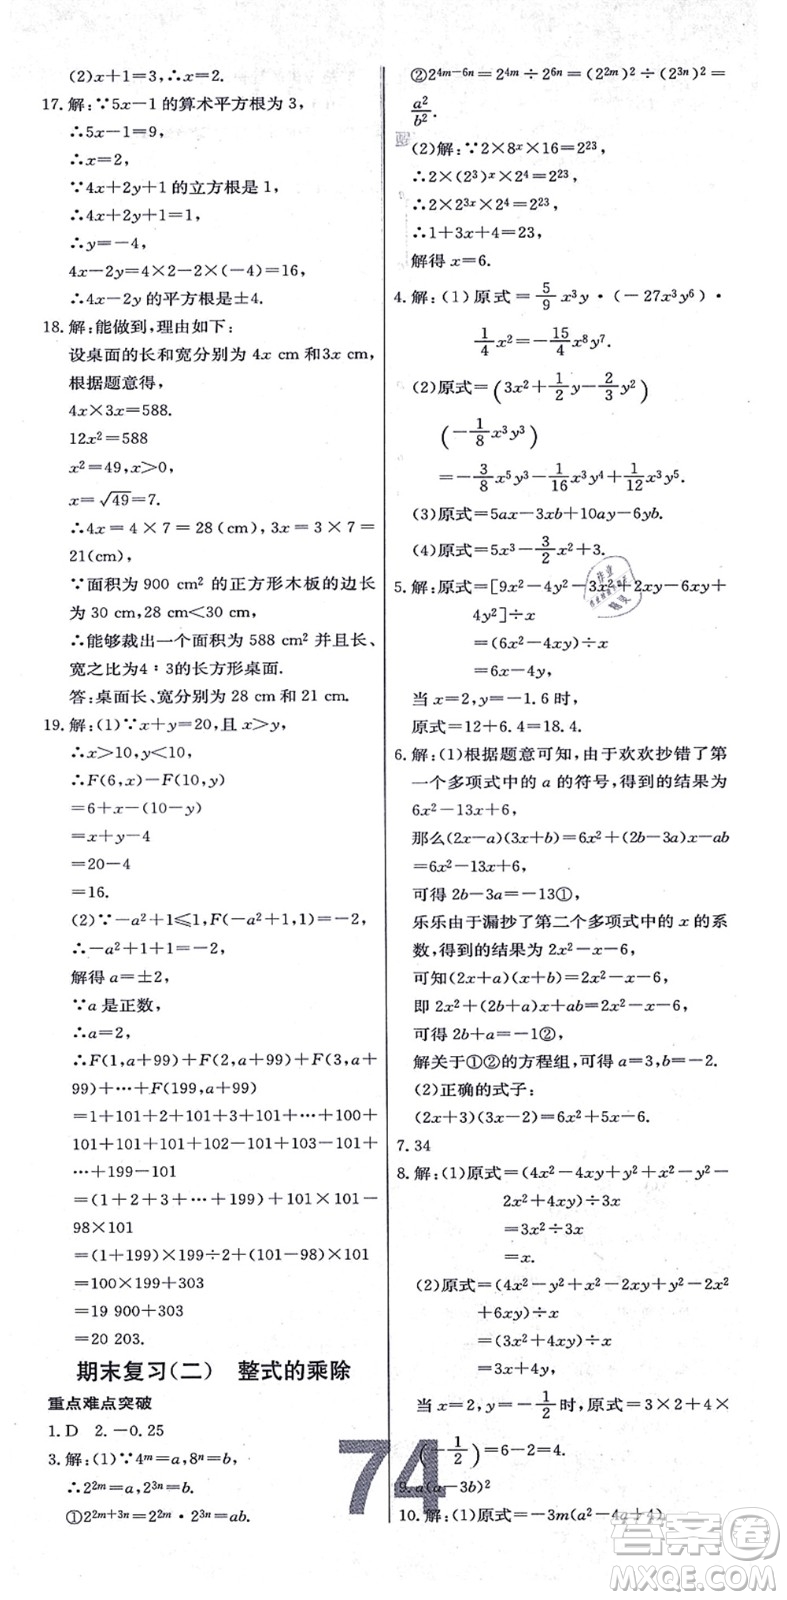 (2)x+1=3,∴x=2.
17.解:∵5x-1的算术平方根为3,
∴5x-1=9,
∴x=2,
∵4x+2y+1的立方根是1,
∴4x+2y+1=1,
∴y=-4,
4x-2y=4×2-2×(-4)=16,
∴4x-2y的平方根是±4.
18.解:能做到,理由如下:
设桌面的长和宽分别为4x cm和3x cm,
根据题意得,
4x×3x=588.
12x²=588
x²=49,x>0,
x=√49=7.
∴4x=4×7=28(cm),3x=3×7=
21(cm),
∵面积为900 cm²的正方形木板的边长
为30 cm,28 cm<30 cm,
∴能够裁出一个面积为588 cm²并且长、
宽之比为4∶3的长方形桌面.
答:桌面长、宽分别为28 cm和21 cm.
19.解:(1)∵x+y=20,且x>y,
∴x>10,y<10,
∴F(6,x)-F(10,y)
=6+x-(10-y)
=x+y-4
=20-4
=16.
(2)∵-a²+1≤1,F(-a²+1,1)=-2,
∴-a²+1+1=-2,
解得a=±2,
∵a是正数,
∴a=2,
∴F(1,a+99)+F(2,a+99)+F(3,a+
99)+…+F(199,a+99)
=1+101+2+101+3+101+…+100+
101+101+101+102-101+103-101
+…+199-101
=(1+2+3+…+199)+101×101-
98×101
=(1+199)×199÷2+(101-98)×101
=100×199+303
=19 900+303
=20 203.
期末复习(二) 整式的乘除
重点难点突破
1.D 2.-0.25
3.解:(1)∵4ᵐ=a,8ⁿ=b,
∴2²ᵐ=a,2³ⁿ=b.
①2²ᵐ⁺³ⁿ=2²ᵐ·2³ⁿ=ab.
②2⁴ᵐ⁻⁶ⁿ=2⁴ᵐ÷2⁶ⁿ=(2²ᵐ)²÷(2³ⁿ)²=
a²/b².
(2)解:∵2×8ˣ×16=2²³,
∴2×(2³)ˣ×2⁴=2²³,
∴2×2³ˣ×2⁴=2²³,
∴1+3x+4=23,
解得x=6.
4.解:(1)原式=5/9x³y·(-27x³y⁶)·
1/4x²=-15/4x⁸y⁷.
(2)原式=(3x²+1/2y-2/3y²)
(-1/8x³y³)
=-3/8x⁵y³-1/16x³y⁴+1/12x³y⁵.
(3)原式=5ax-3xb+10ay-6yb.
(4)原式=5x³-3/2x²+3.
5.解:原式=[9x²-4y²-3x²+2xy-6xy+
4y²]÷x
=(6x²-4xy)÷x
=6x-4y,
当x=2,y=-1.6时,
原式=12+6.4=18.4.
6.解:(1)根据题意可知,由于欢欢抄错了第
一个多项式中的a的符号,得到的结果为
6x²-13x+6,
那么(2x-a)(3x+b)=6x²+(2b-3a)x-ab
=6x²-13x+6,
可得2b-3a=-13①,
乐乐由于漏抄了第二个多项式中的x的系
数,得到的结果为2x²-x-6,
可知(2x+a)(x+b)=2x²-x-6,
即2x²+(2b+a)x+ab=2x²-x-6,
可得2b+a=-1②,
解关于①②的方程组,可得a=3,b=-2.
(2)正确的式子:
(2x+3)(3x-2)=6x²+5x-6.
7.34
8.解:(1)原式=(4x²-4xy+y²+x²-y²-
2x²+4xy)÷3x
=3x²÷3x
=x.
(2)原式=(4x²-y²+2xy+y²-2x²
+4xy)÷x
=(2x²+6xy)÷x
=2x+6y,
当x=2,y=-1/2时,原式=2×2+6×
(-1/2)=6-2=4.
9.a(a-3b)²
10.解:(1)原式=-3m(a²-4a+4)
74
答案圈
MXQE.COM